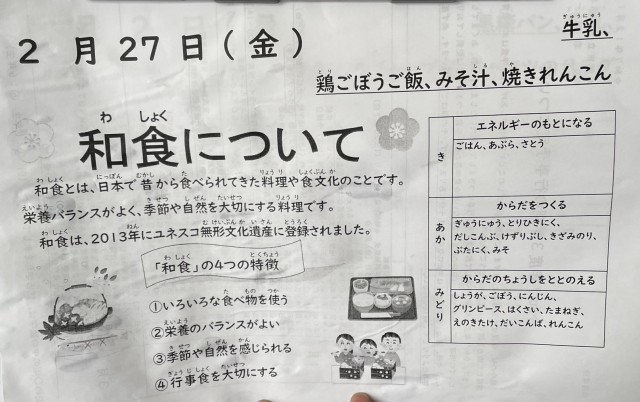 2月27日(金)
牛乳、
鶏ごぼうご飯、みそ汁、焼きれんこん
和食について
和食とは、日本で昔から食べられてきた料理や食文化のことです。
栄養バランスがよく、季節や自然を大切にする料理です。
和食は、2013年にユネスコ無形文化遺産に登録されました。
「和食」の4つの特徴
①いろいろな食べ物を使う
②栄養のバランスがよい
③季節や自然を感じられる
④行事食を大切にする
き
エネルギーのもとになる
ごはん、あぶら、さとう
あか
からだをつくる
ぎゅうにゅう、とりひきにく、
だしこんぶ、けずりぶし、きざみのり、
ぶたにく、みそ
みどり
からだのちょうしをととのえる
しょうが、ごぼう、にんじん、
グリンピース、はくさい、たまねぎ、
えのきたけ、だいこんば、れんこん